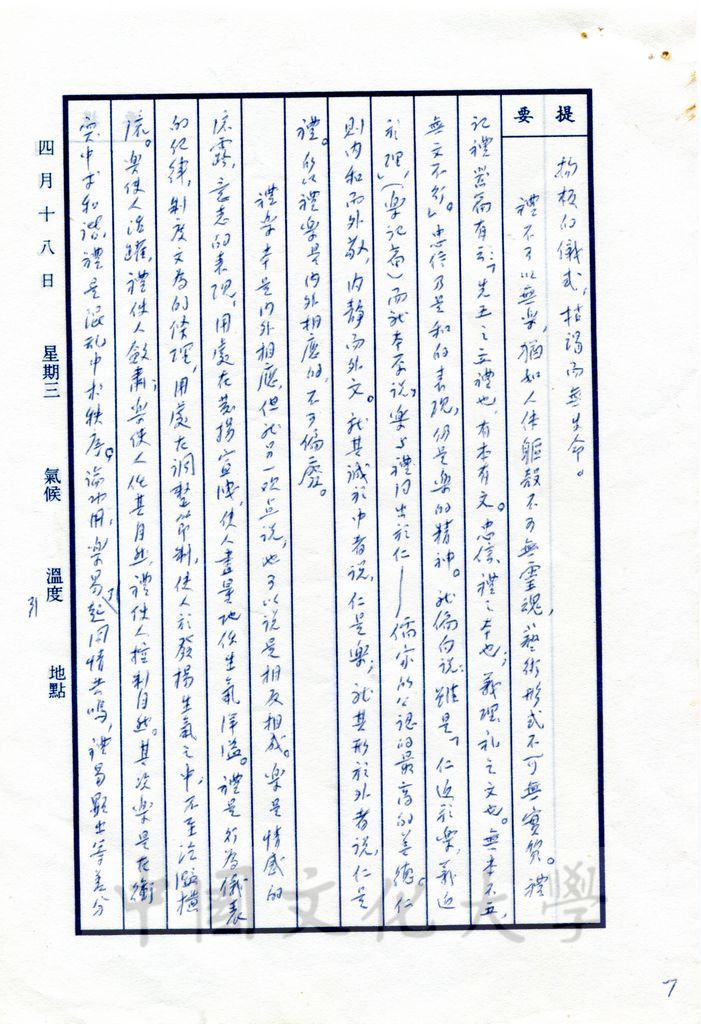 提要
拘板的儀式,枯竭而無生命。
禮不可以無樂,猶如人体軀殼不可無靈魂,藝術形式不可無實質。禮
記禮器篇有云:「先王之立禮也,有本有文。忠信,禮之本也;義理,礼之文也。無本不立,
無文不行。」忠信乃是和的表現,仍是樂的精神。就偏向說:雖是「仁近於樂,義近
於理」,(樂記篇)而就本原說,樂与禮同出於仁——儒家所公認的最高的美德。仁
則內和而外敬,內靜而外文。就其誠於中者說,仁是樂;就其形於外者說,仁是
禮。所以禮樂是內外相應的,不可偏廢。
禮樂本是內外相應,但就另一欢点說,也可以說是相反相成。樂是情感的
流露,意志的表現,用處在發揚宣洩,使人盡量地使生氣洋溢。禮是行為儀表
的纪律,制度文為的條理,用處在調整節制,使人於發揚生氣之中,不至泛濫橫
流。樂使人活躍,禮使人斂肅;樂使人任其自然,禮使人控制自然。其次樂是在衝
突中求和諧,禮是混乱中求秩序。論功用,樂易引起同情共鳴,禮易顯出等差分
四月十八日 星期三 氣候 溫度 地點
引
中國文化大學
7